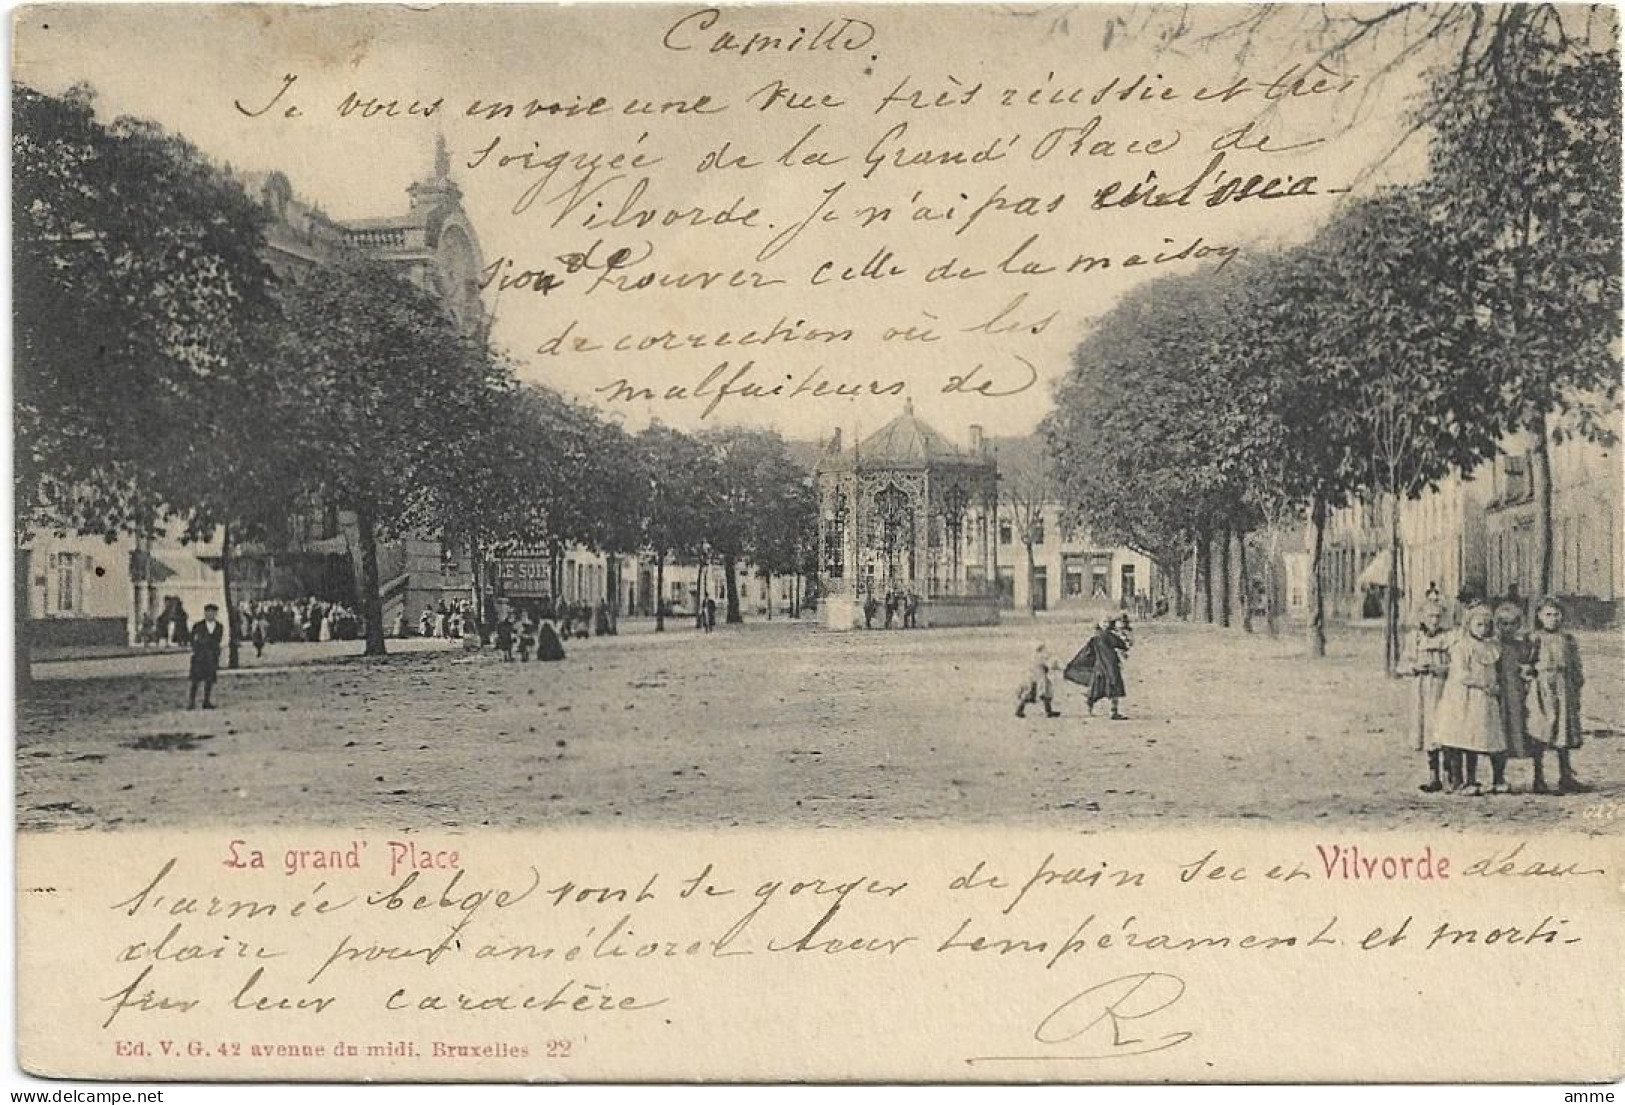 Camille.
Je vous envoie une vue très réussie et très
soignée de la Grand' Place de
Vilvorde. Je n'ai pas eu l'occa-
sion de trouver celle de la maison
de correction où les
malfaiteurs de
LE SOIR
La grand' Place
Vilvorde
l'armée belge vont se gorger de pain sec et d'eau
claire pour améliorer leur tempérament et morti-
fier leur caractère.
R
Ed. V. G. 42 avenue du midi, Bruxelles 22
delcampe.net
amme_